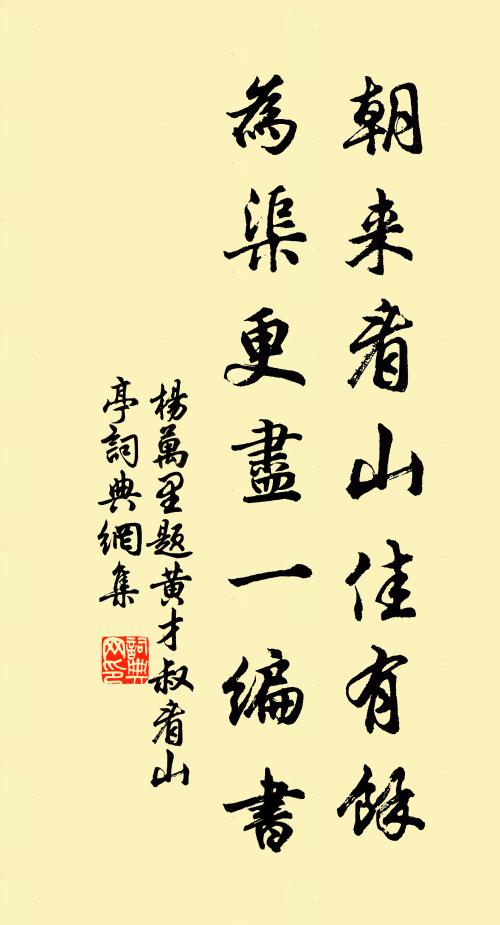 朝来看山佳有餘
為渠更盡一編書
楊萬里题黄才叔看山
亭詞典網集
詞典
网印